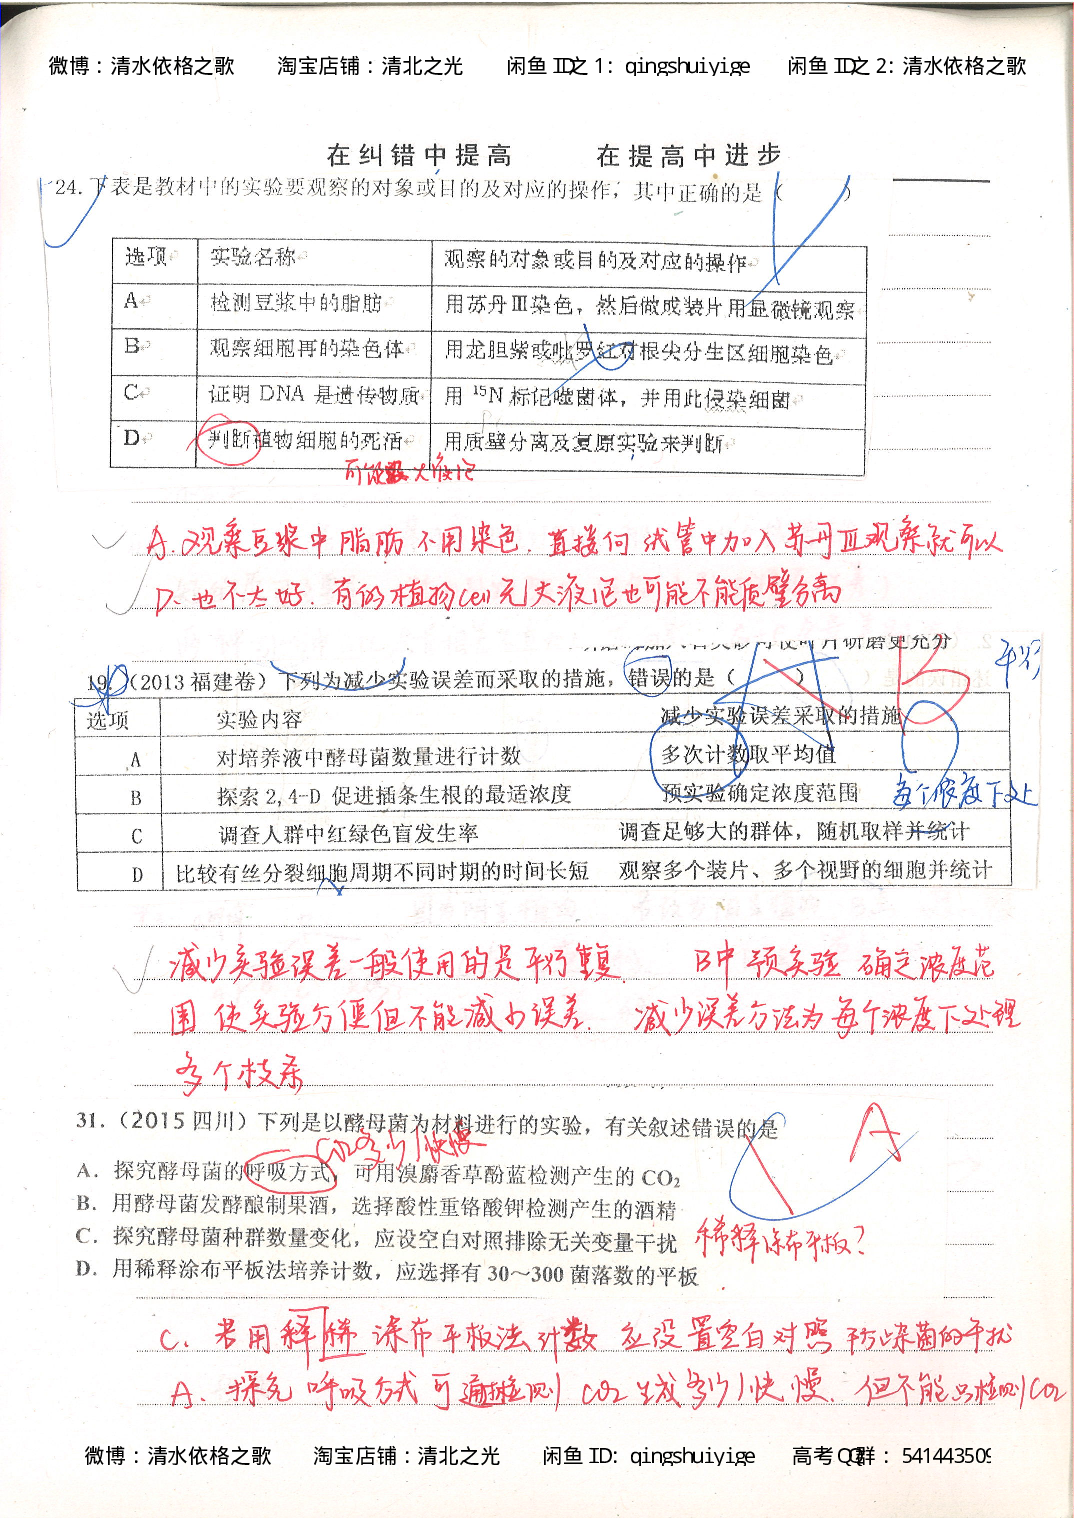 微博：清水依格之歌 淘宝店铺：清北之光 闲鱼 ID之 1: qingshuiyige 闲鱼 ID之 2: 清水依格之歌
在纠错中提高 在提高中进步
24. 下表是教材中的实验要观察的对象或目的及对应的操作，其中正确的是（ ）
选项 实验名称 观察的对象或目的及对应的操作
A 检测豆浆中的脂肪 用苏丹Ⅲ染色，然后做成装片用显微镜观察
B 观察细胞再的染色体 用龙胆紫或吡罗红对根尖分生区细胞染色
C 证明 DNA 是遗传物质 用 ¹⁵N 标记噬菌体，并用此侵染细菌
D 判断植物细胞的死活 用质壁分离及复原实验来判断
A. 观察豆浆中脂肪不用染色．直接向试管中加入苏丹Ⅲ观察就可以
D. 也不太好．有的植物cell无大液泡也可能不能质壁分离
19. （2013 福建卷）下列为减少实验误差而采取的措施，错误的是（ ） A B
选项 实验内容 减少实验误差采取的措施
A 对培养液中酵母菌数量进行计数 多次计数取平均值
B 探索 2,4-D 促进插条生根的最适浓度 预实验确定浓度范围 每个浓度下处上
C 调查人群中红绿色盲发生率 调查足够大的群体，随机取样并统计
D 比较有丝分裂细胞周期不同时期的时间长短 观察多个装片、多个视野的细胞并统计
减少实验误差一般使用的是平行重复 B中预实验 确定浓度范
围 使实验方便但不能减少误差． 减少误差方法为每个浓度下处理
多个枝条
31.（2015 四川）下列是以酵母菌为材料进行的实验，有关叙述错误的是 A
CO2多少/快慢
A．探究酵母菌的呼吸方式，可用溴麝香草酚蓝检测产生的 CO₂
B．用酵母菌发酵酿制果酒，选择酸性重铬酸钾检测产生的酒精
C．探究酵母菌种群数量变化，应设空白对照排除无关变量干扰 稀释涂布平板？
D．用稀释涂布平板法培养计数，应选择有 30～300 菌落数的平板
C. 若用释稀涂布平板法计数 应设置空白对照 防止杂菌的干扰
A. 探究呼吸方式可通过检测CO2生成多少/快慢．但不能只检测CO2
微博：清水依格之歌 淘宝店铺：清北之光 闲鱼 ID: qingshuiyige 高考 QQ群： 541443509